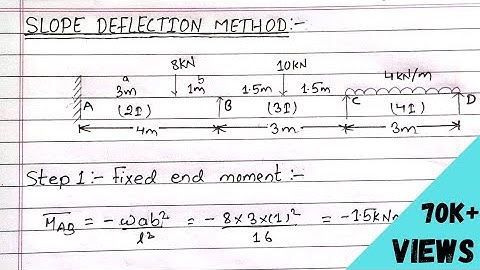 SLOPE DEFLECTION METHOD:-
8KN 10KN 4KN/m
a b
3m 1m 1.5m 1.5m
A (2I) B (3I) C (4I) D
4m 3m 3m
Step 1:- Fixed end moment:-
M̅AB = -wab²/l² = -8×3×(1)²/16 = -1.5KN
70K+
VIEWS